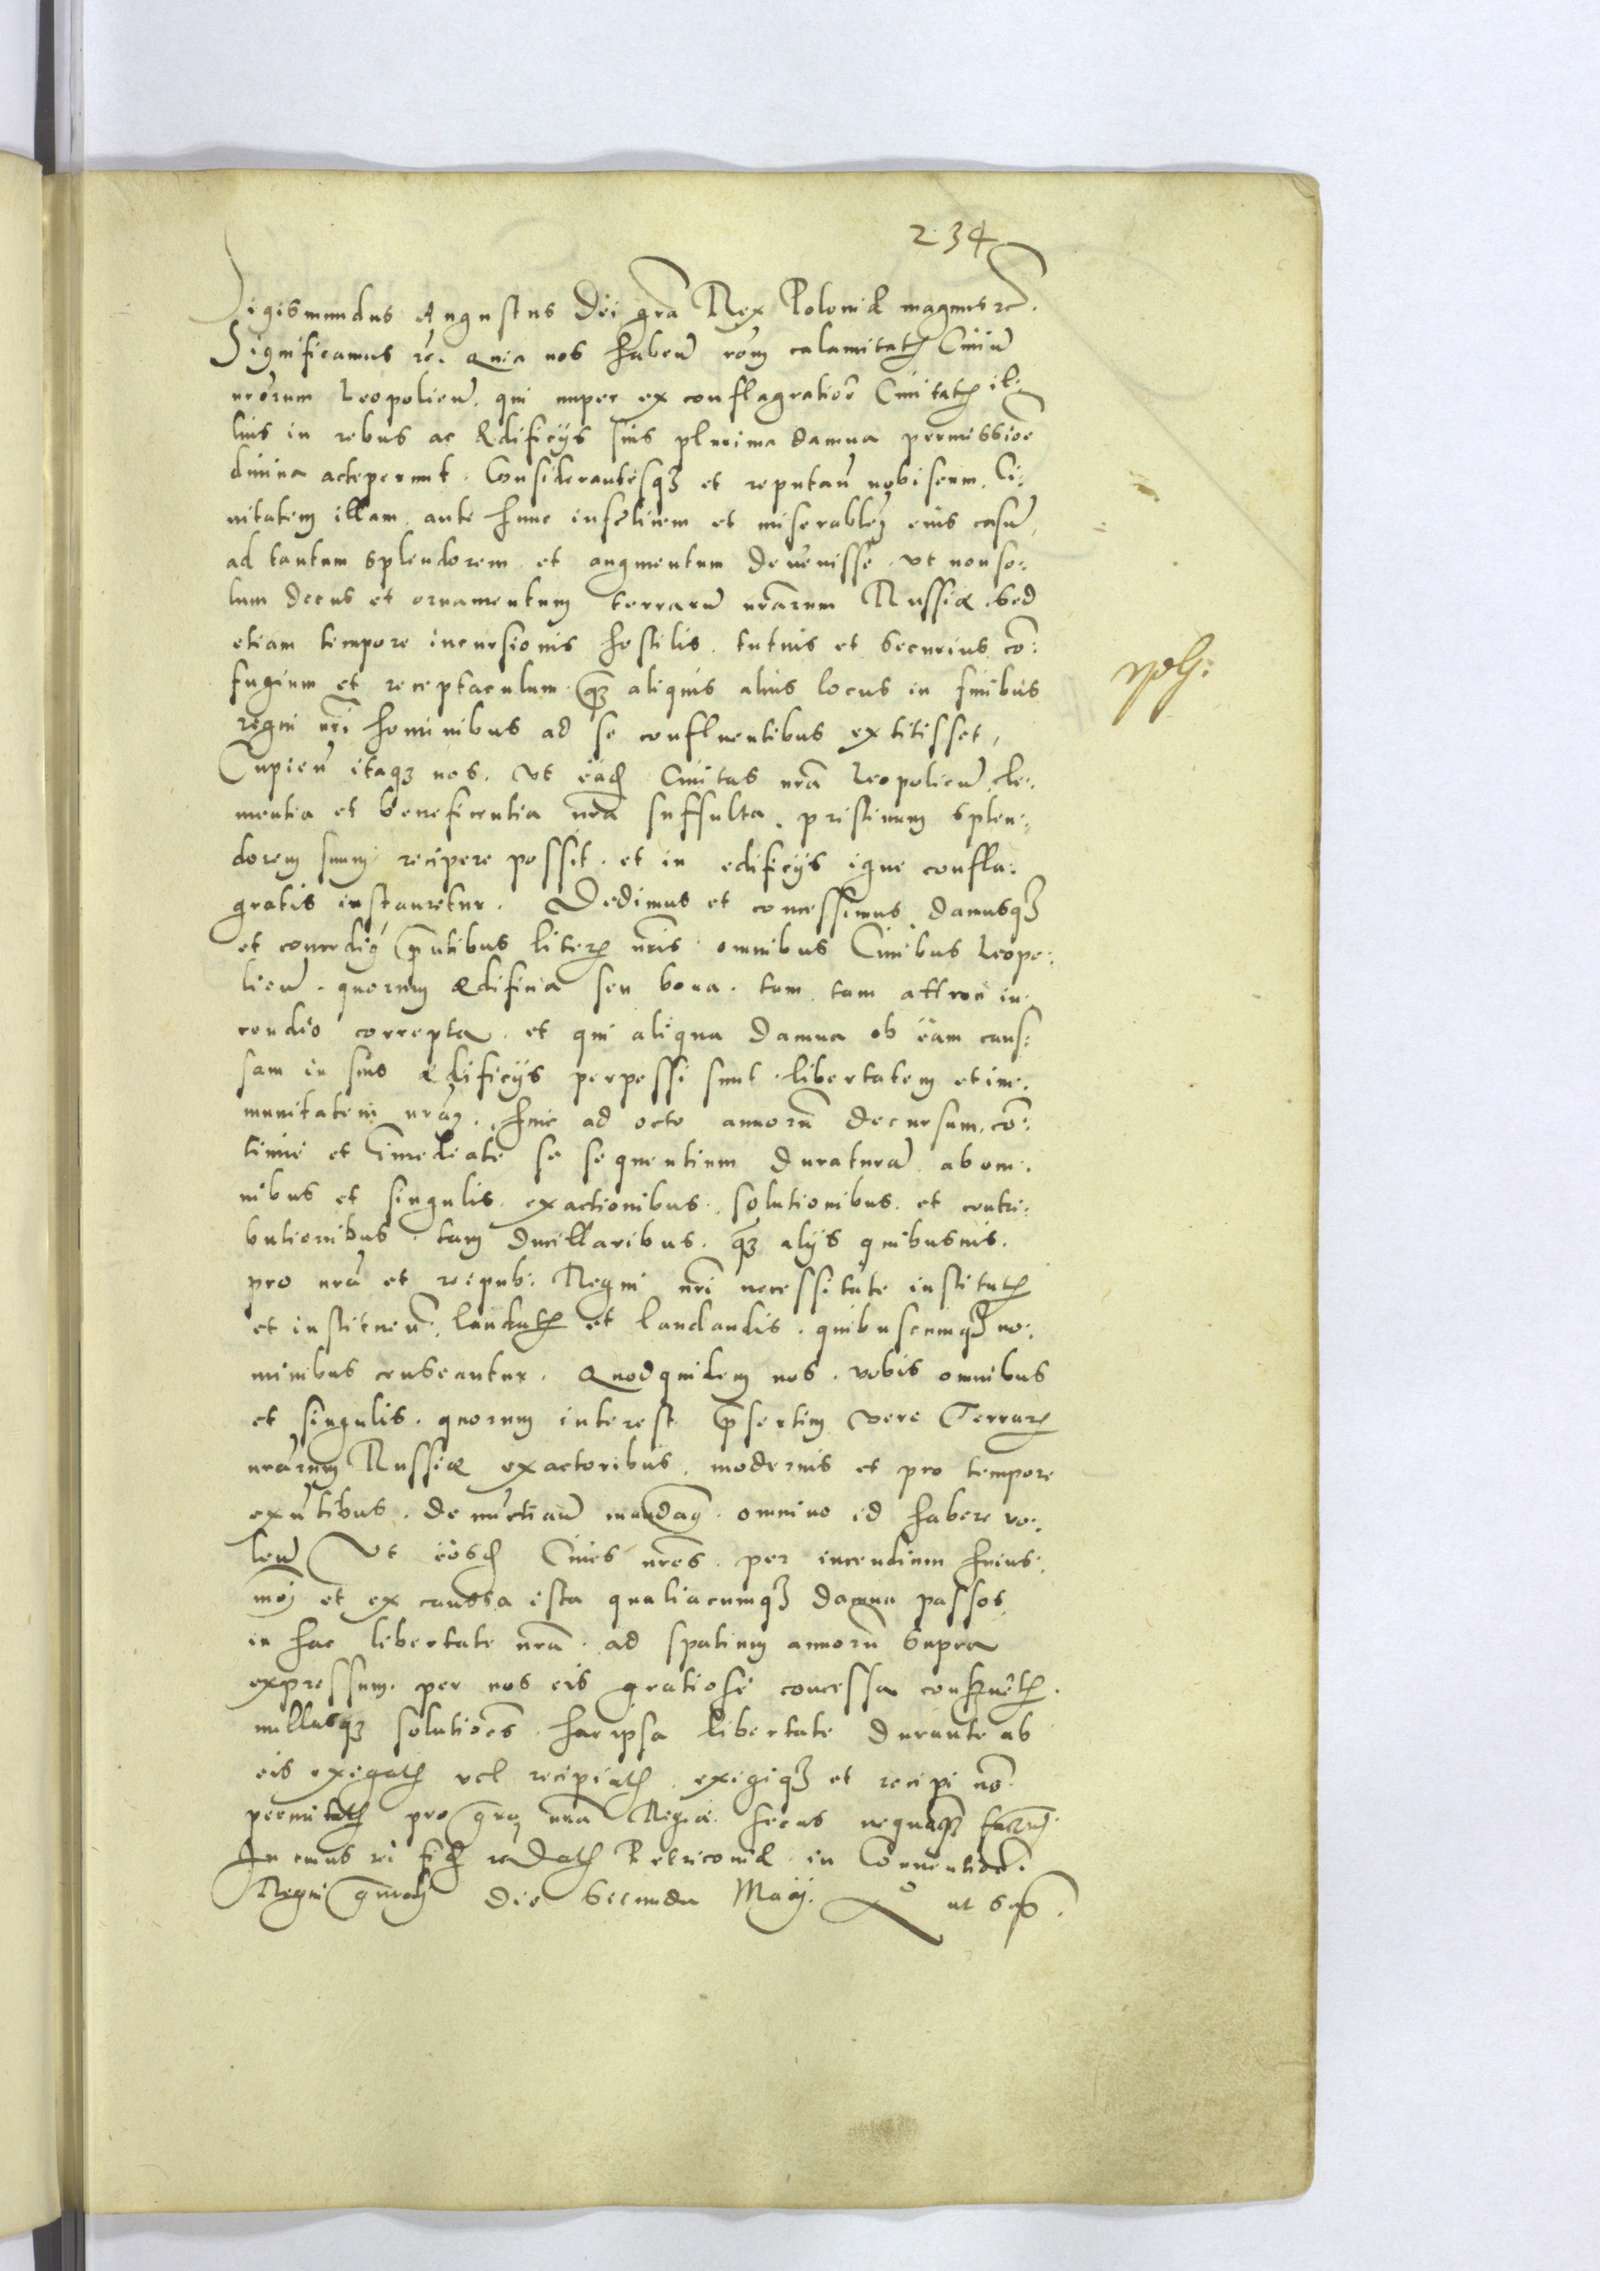 234
Sigismundus Augustus Dei gra Rex Poloniæ magnus rc.
Significamus rc. Quia nos habeñ rōem calamitatis Civiū
nrorum Leopolieñ. qui nuper ex conflagratiōe Civitatis il:
lius in rebus ac Ædificÿs suis plurima damna permissiōe
divina acceperunt. Considerantesq3 et reputañ nobiscum. Ci:
vitatem illam ante hunc infelicem et miserablem eius casū
ad tantum splendorem et augmentum devenisse. vt non so:
lum decus et ornamentum terrarū nrarum Russiæ. sed
etiam tempore incursionis hostilis. tutius et securius cō:
fugium et receptaculum q3 aliquis alius locus in finibus
regni nri hominibus ad se confluentibus extitisset,
Cupieñ itaq3 nos. vt eād Civitas nra Leopolieñ cle:
mentia et beneficentia nra suffulta. pristinum splen:
dorem suum recipere possit. et in edificÿs igne confla:
gratis instauretur. Dedimus et concessimus damusq3
et concedim pntibus literis nris omnibus Civibus Leopo:
lieñ. quorum ædificia seu bona. tum tam atroci in:
cendio correpta. et qui aliqua damna ob eam caus:
sam in suis ædificÿs perpessi sunt. libertatem et im:
munitatem nram. hinc ad octo annorū decursum. cō:
tinue et imediate se sequentium duraturā ab om:
nibus et singulis. exactionibus. solutionibus. et contri:
butionibus. tam ducillaribus. q3 alÿs quibusuis.
pro nra et reipub: Regni nri necessitate institutis
et institueñ. laudatis et laudandis. quibuscumq3 no:
minibus censeantur. Quodquidem nos. vobis omnibus
et singulis. quorum interest psertim vero Terrarum
nrarum Russiæ exactoribus. modernis et pro tempore
exñtibus. denuctiañ mandam. omnino id habere vo:
leñ Vt eosd Cives nros. per incendium huius:
mōi et ex caussa ista qualiacumq3 damna passos
in hac libertate nra. ad spatium annorū supra
expressum. per nos eis gratiose concessa conservetis.
nullasq3 solutiões hac ipsa libertate durante ab
eis exigatis vel recipiatis. exigiq3 et recipi nō
permittatis pro gra nra Regia. secus nequaq3
In cuius rei fid Datis Petricoviæ in Conventiōe.
Regni gnrali die secunda Maÿ. Lº ut sup.